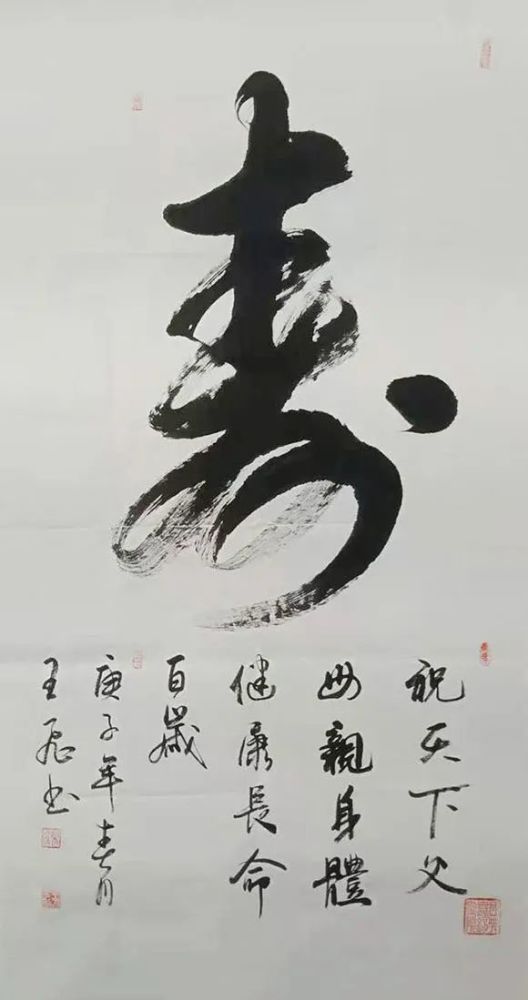 壽
祝天下父
母親身體
健康長命
百歲
庚子年春月
王飛书